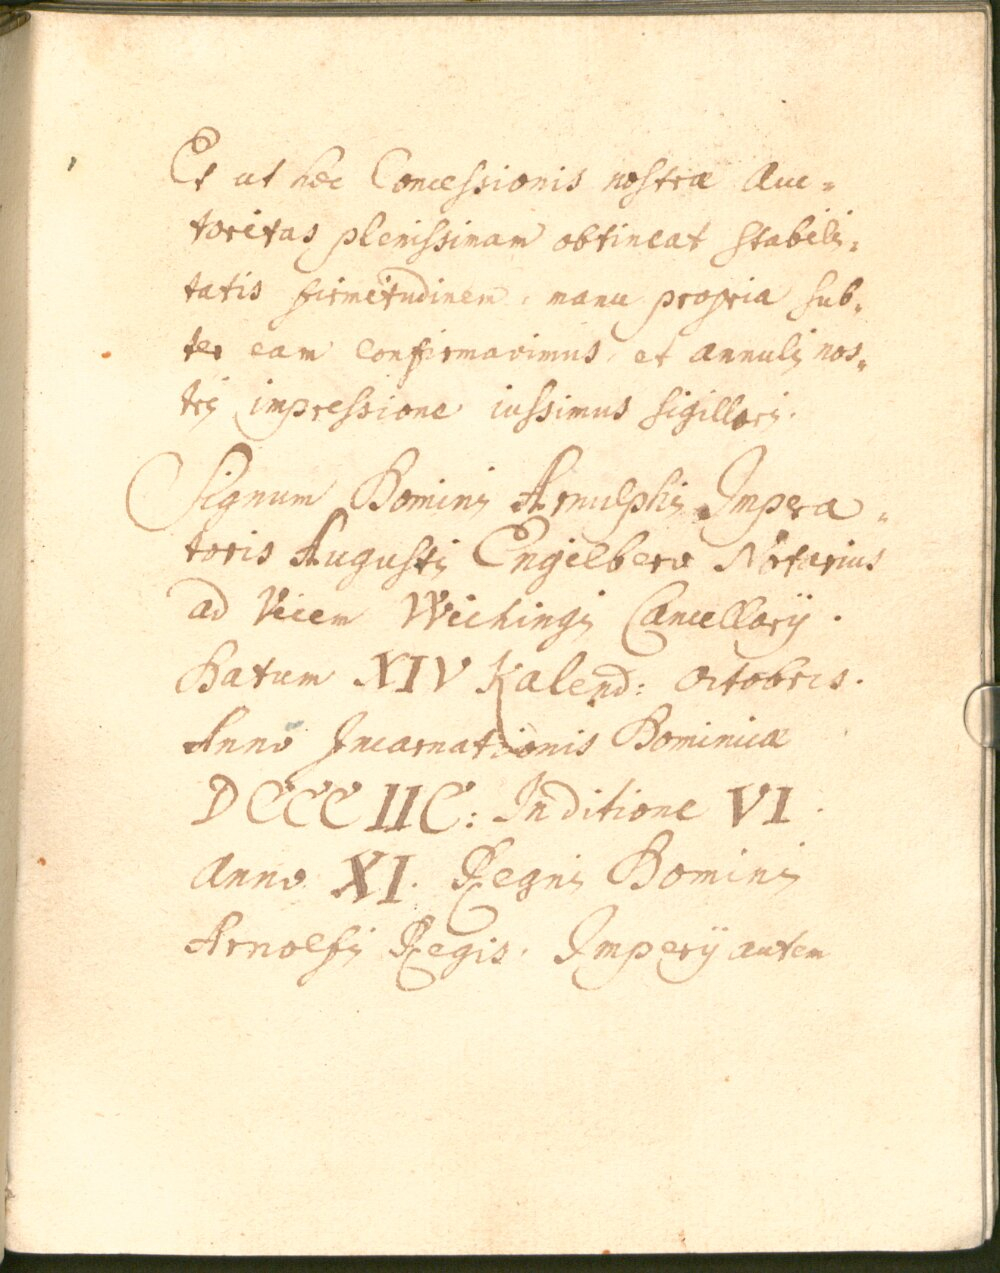 Et ut hec Concessionis nostræ Auc=
toritas plenissimam obtineat stabili=
tatis firmitudinem, manu propria sub=
ter eam confirmavimus, et annuli nos=
tri impressione iussimus sigillari.
Signum Domini Arnulphi Impera=
toris Augusti Engilbero Notarius
ad Vicem Wichingi Cancellarij.
Datum XIV Kalend: Octobris.
Anno Incarnationis Dominicæ
DCCCIIC: Inditione VI.
Anno XI. Regni Domini
Arnolfi Regis. Imperij autem